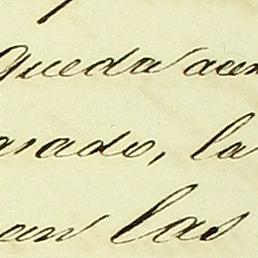 queda acen
asado, la
an las